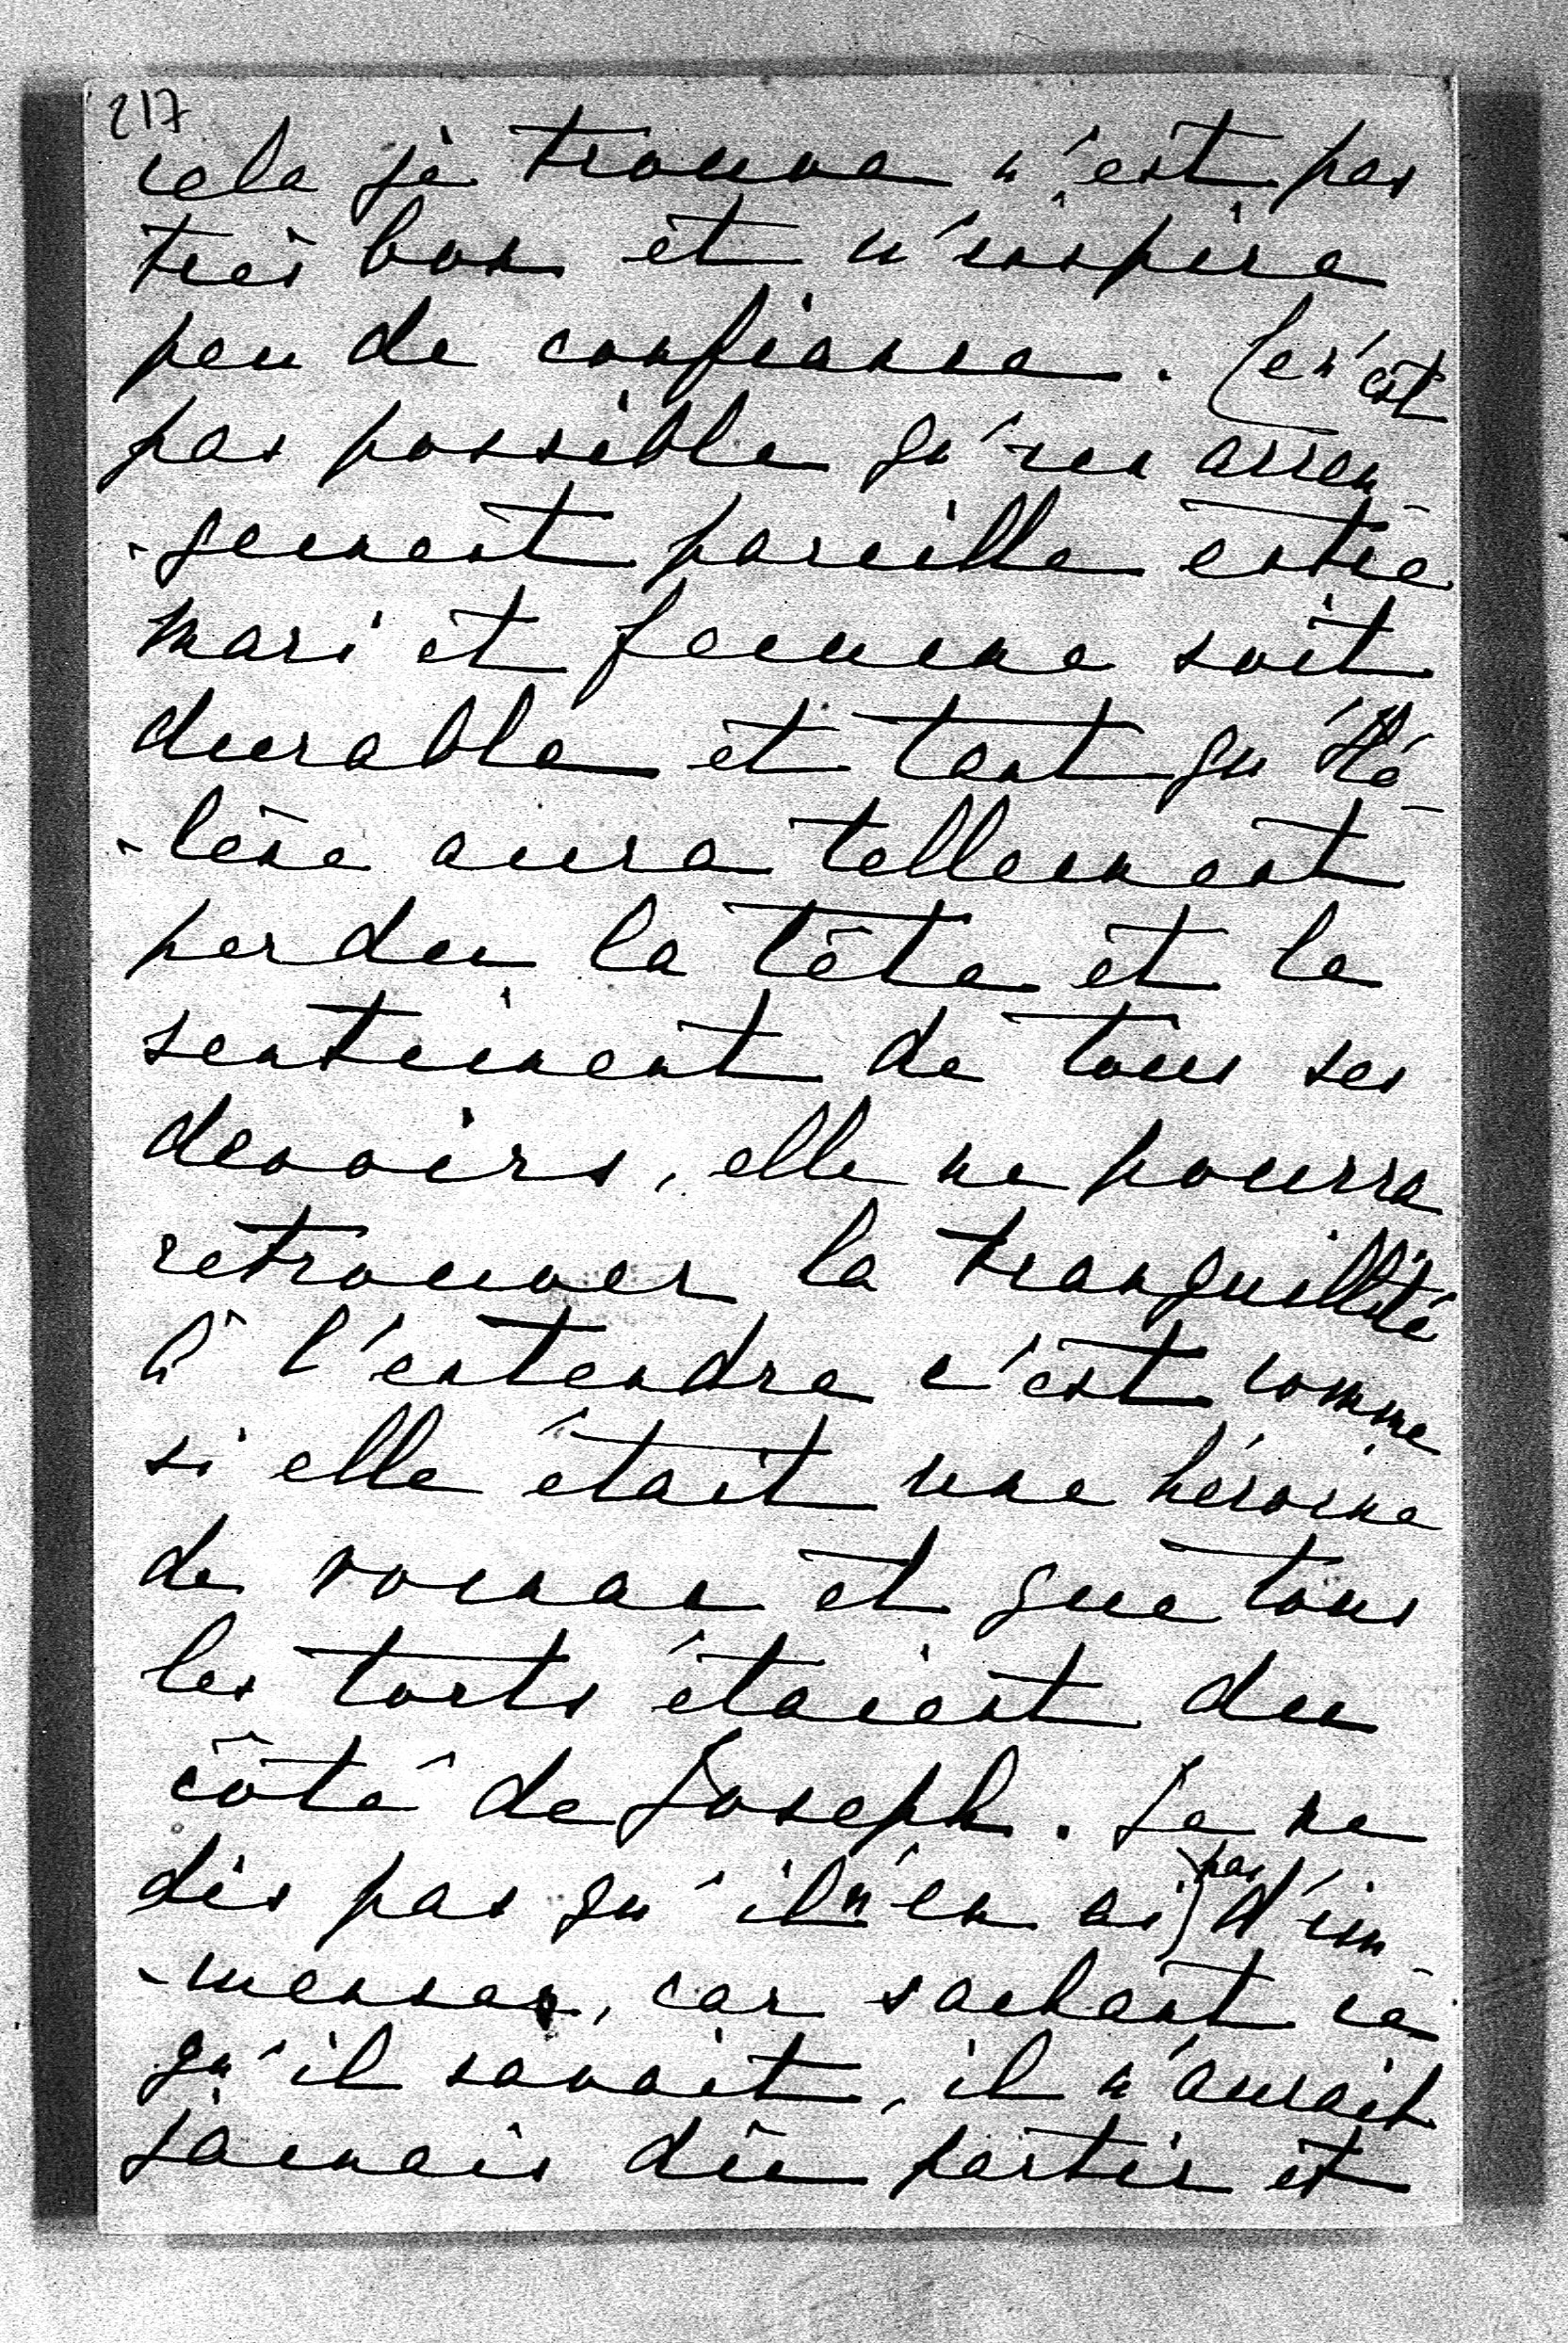 217
cela je trouve n'est pas
très bon et n'inspire
peu de confiance. Ce n'est
pas possible qu'un arran-
-gement pareille entre
mari et femme soit
durable et tant qu'Hé-
-lène aura tellement
perdu la tête et le
sentiment de tous ses
devoirs, elle ne pourra
retrouver la tranquillité
À l'entendre c'est comme
si elle était une héroine
de roman et que tous
les torts étaient du
côté de Joseph. Je ne
dis pas qu'il n'en ai pas d'im-
-menses, car sachant ce
qu'il savait, il n'aurait
jamais dû partir et